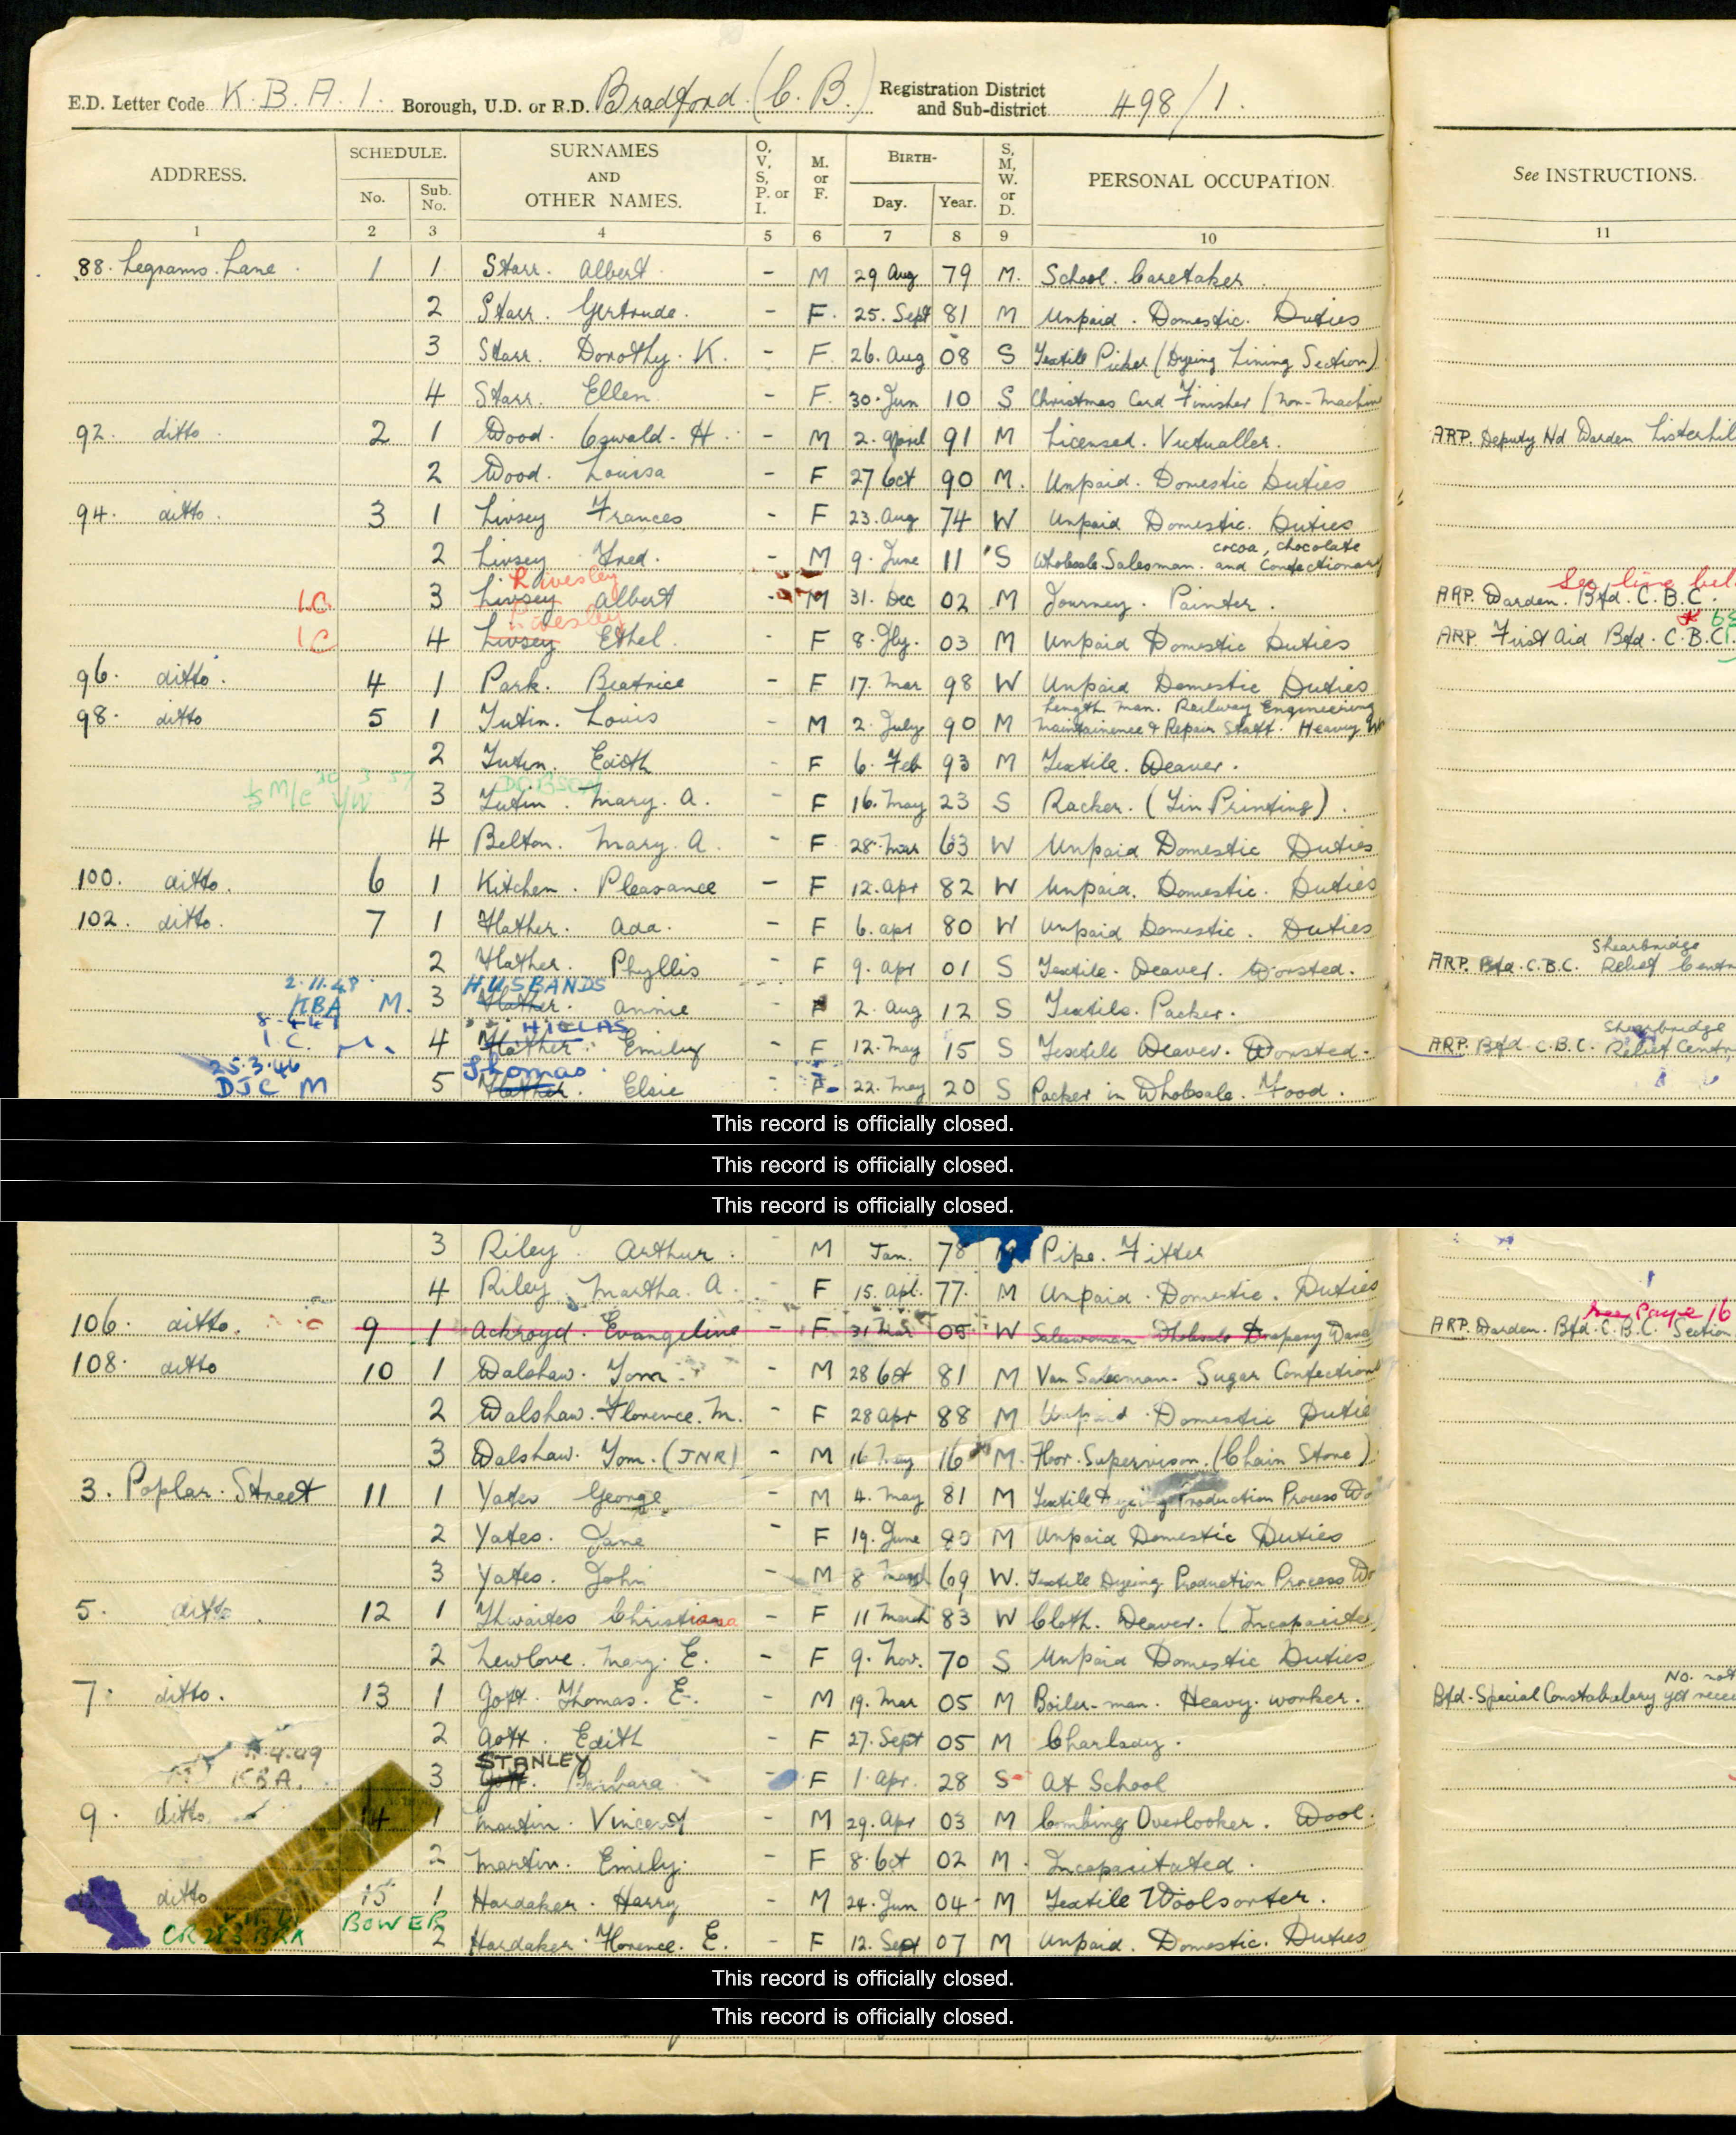 E.D. Letter Code K.B.A. 1. Borough, U.D. or R.D. Bradford. (C.B.) Registration District and Sub-district 498/1.
ADDRESS. SCHEDULE. No. Sub. No. SURNAMES AND OTHER NAMES. O, V, S, P. or I. M. or F. BIRTH- Day. Year. S, M, W. or D. PERSONAL OCCUPATION. See INSTRUCTIONS.
1 2 3 4 5 6 7 8 9 10 11
88. Legrams. Lane. 1 1 Starr. Albert. - M 29 Aug 79 M. School. Caretaker.
2 Starr. Gertrude. - F. 25. Sept 81 M Unpaid. Domestic. Duties
3 Starr. Dorothy. K. - F. 26. Aug 08 S Textile Picker (Dyeing Lining Section)
4 Starr. Ellen. - F. 30. Jun 10 S Christmas Card Finisher (Non-Machin
92. ditto. 2 1 Wood. Oswald. H. - M 2. April 91 M Licensed. Victualler. ARP. Deputy Hd Warden Listerhil
2 Wood. Louisa - F 27 Oct 90 M. Unpaid. Domestic Duties
94. ditto. 3 1 Livsey Frances - F 23. Aug 74 W Unpaid Domestic. Duties
2 Livsey Fred. - M 9. June 11 S Wholesale Salesman. cocoa, chocolate and Confectionary
1C 3 Livsey Albert - M 31. Dec 02 M Journey. Painter. ARP. Warden. Bfd. C.B.C. See line bel
1C 4 Livsey Ethel. - F 8. Jly. 03 M Unpaid Domestic Duties ARP. First Aid Bfd. C.B.C.
96. ditto. 4 1 Park. Beatrice - F 17. Mar 98 W Unpaid Domestic Duties
98. ditto 5 1 Tutin. Louis - M 2. July 90 M Length Man. Railway Engineering Maintainence & Repair Staff. Heavy W
2 Tutin. Edith - F 6. Feb 93 M Textile. Weaver.
DOBSON
3 Tutin. Mary. A. - F 16. May 23 S Racker. (Tin Printing).
4 Belton. Mary. A. - F 28. Mar 63 W Unpaid Domestic Duties
100. ditto. 6 1 Kitchen. Pleasance - F 12. Apr 82 W Unpaid. Domestic. Duties
102. ditto. 7 1 Hather. Ada. - F 6. Apr 80 W Unpaid Domestic. Duties
2 Hather. Phyllis - F 9. Apr 01 S Textile. Weaver. Worsted. ARP. Bfd. C.B.C. Shearbridge Relief Centr
2.11.48. HUSBANDS
KBA M. 3 Hather. Annie F 2. Aug 12 S Textile. Packer.
4 Hather. Emily - F 12. May 15 S Textile Weaver. Worsted. ARP. Bfd. C.B.C. Shearbridge Relief Centr
25.3.46 Thomas.
DJC M 5 Hather. Elsie F. 22. May 20 S Packer in Wholesale. Food.
This record is officially closed.
This record is officially closed.
This record is officially closed.
3 Riley. Arthur. - M Jan. 78 M Pipe. Fitter
4 Riley Martha. A. - F 15. Apl. 77. M Unpaid. Domestic. Duties
106. ditto. 9 1 Ackroyd. Evangeline - F 31 Mar 05 W Saleswoman Wholesale Drapery Ware ARP. Warden. Bfd. C.B.C. Section see page 16
108. ditto 10 1 Walshaw. Tom. - M 28 Oct 81 M Van Salesman. Sugar Confection
2 Walshaw. Florence. M. - F 28 Apr 88 M Unpaid Domestic Dutie
3 Walshaw. Tom. (JNR) - M 16 May 16 M. Floor. Supervison. (Chain Store)
3. Poplar. Street 11 1 Yates George - M 4. May 81 M Textile Dyeing Production Process Wo
2 Yates. Jane - F 19. June 80 M Unpaid Domestic Duties
3 Yates. John - M 8 March 69 W. Textile Dyeing Production Process Wo
5. ditto. 12 1 Thwaites Christiana - F 11 March 83 W Cloth. Weaver. (Incapacita
2 Newlove. Mary. E. - F 9. Nov. 70 S Unpaid Domestic Duties
7. ditto. 13 1 Gott. Thomas. E. - M 19. Mar 05 M Boiler-man. Heavy. worker. Bfd. Special Constabulary No. not yet recei
2 Gott. Edith - F 27. Sept 05 M Charlady.
STANLEY
KBA. 3 Gott. Barbara F 1. Apr. 28 S At School
9. ditto. 14 1 Martin. Vincent - M 29. Apr 03 M Combing Overlooker. Wool.
2 Martin. Emily. - F 8. Oct 02 M. Incapacitated.
ditto 15 1 Hardaker. Harry - M 24. Jun 04 M Textile Woolsorter.
BOWER
2 Hardaker. Florence. E. - F 12. Sept 07 M Unpaid. Domestic. Duties
This record is officially closed.
This record is officially closed.